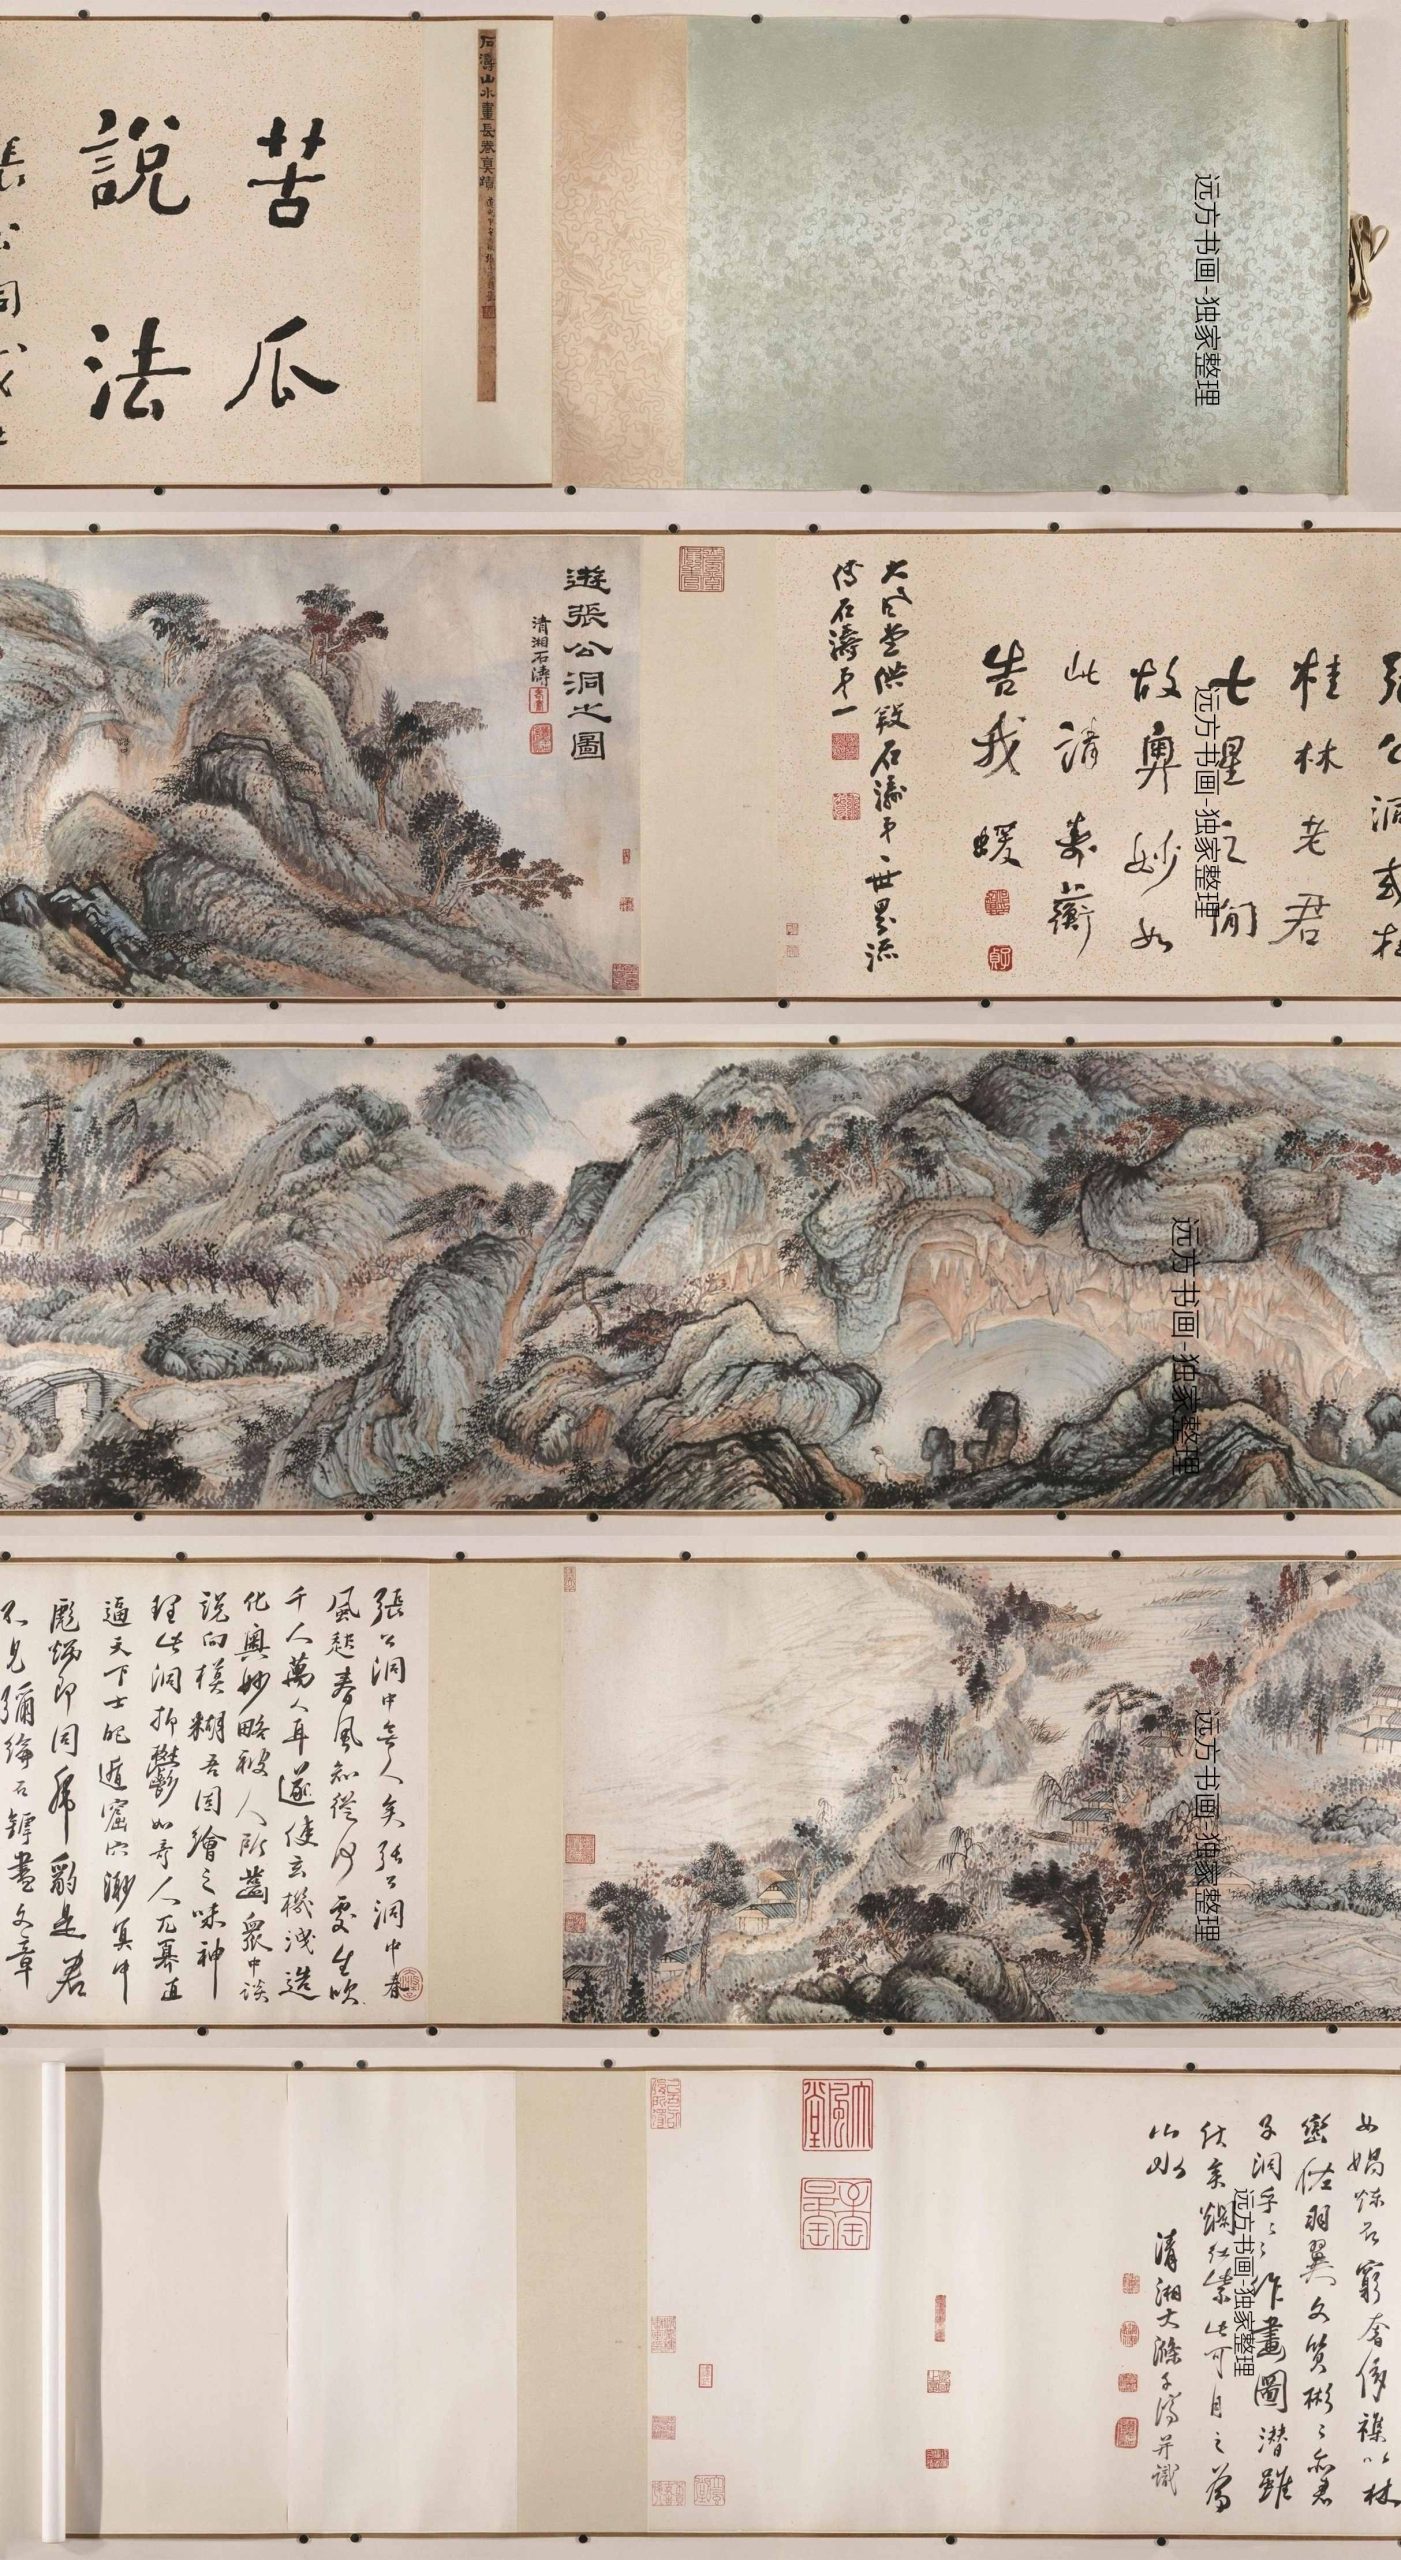 苦瓜
說法
石濤山水畫長卷真蹟
張公洞或
桂林老君
七星之間
故奧妙如
此請壽蘅
告我 蝯
大風堂供養石濤第一世界流
傳石濤第一
遊張公洞之圖
清湘石濤
張公洞中無人矣張公洞中春
風起春風知從何處生吹
千人萬人耳遂使玄機洩造
化奧妙略被人所齒眾中談
說向模糊吾固繪之味神
理此洞抑鬱如奇人兀冪直
逼天下士能遁窟穴渺冥中
彪炳即同席豹是君
不見彌綸石罅盡文章
女媧煉石窮奢侈襍以林
巒佐羽翼文質彬彬亦君
子洞乎洞乎作畫圖潛雖
伏矣爛紅紫此可目之為
山水 清湘大滌子濟并識
大風堂
远方书画-独家整理
远方书画-独家整理
远方书画-独家整理
远方书画-独家整理
远方书画-独家整理